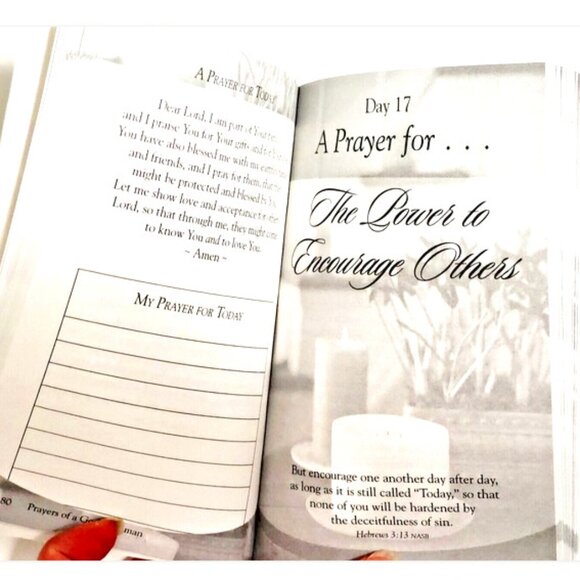 A PRAYER FOR TODAY
Dear Lord, I am part of Your
and I praise You for Your gifts and
You have also blessed me with my earthly
and friends, and I pray for them, that they
might be protected and blessed by You.
Let me show love and acceptance for other
Lord, so that through me, they might come
to know You and to love You.
~ Amen ~
MY PRAYER FOR TODAY
80
Prayers of a
man
Day 17
A Prayer for . . .
The Power to
Encourage Others
But encourage one another day after day,
as long as it is still called "Today," so that
none of you will be hardened by
the deceitfulness of sin.
Hebrews 3:13 NASB